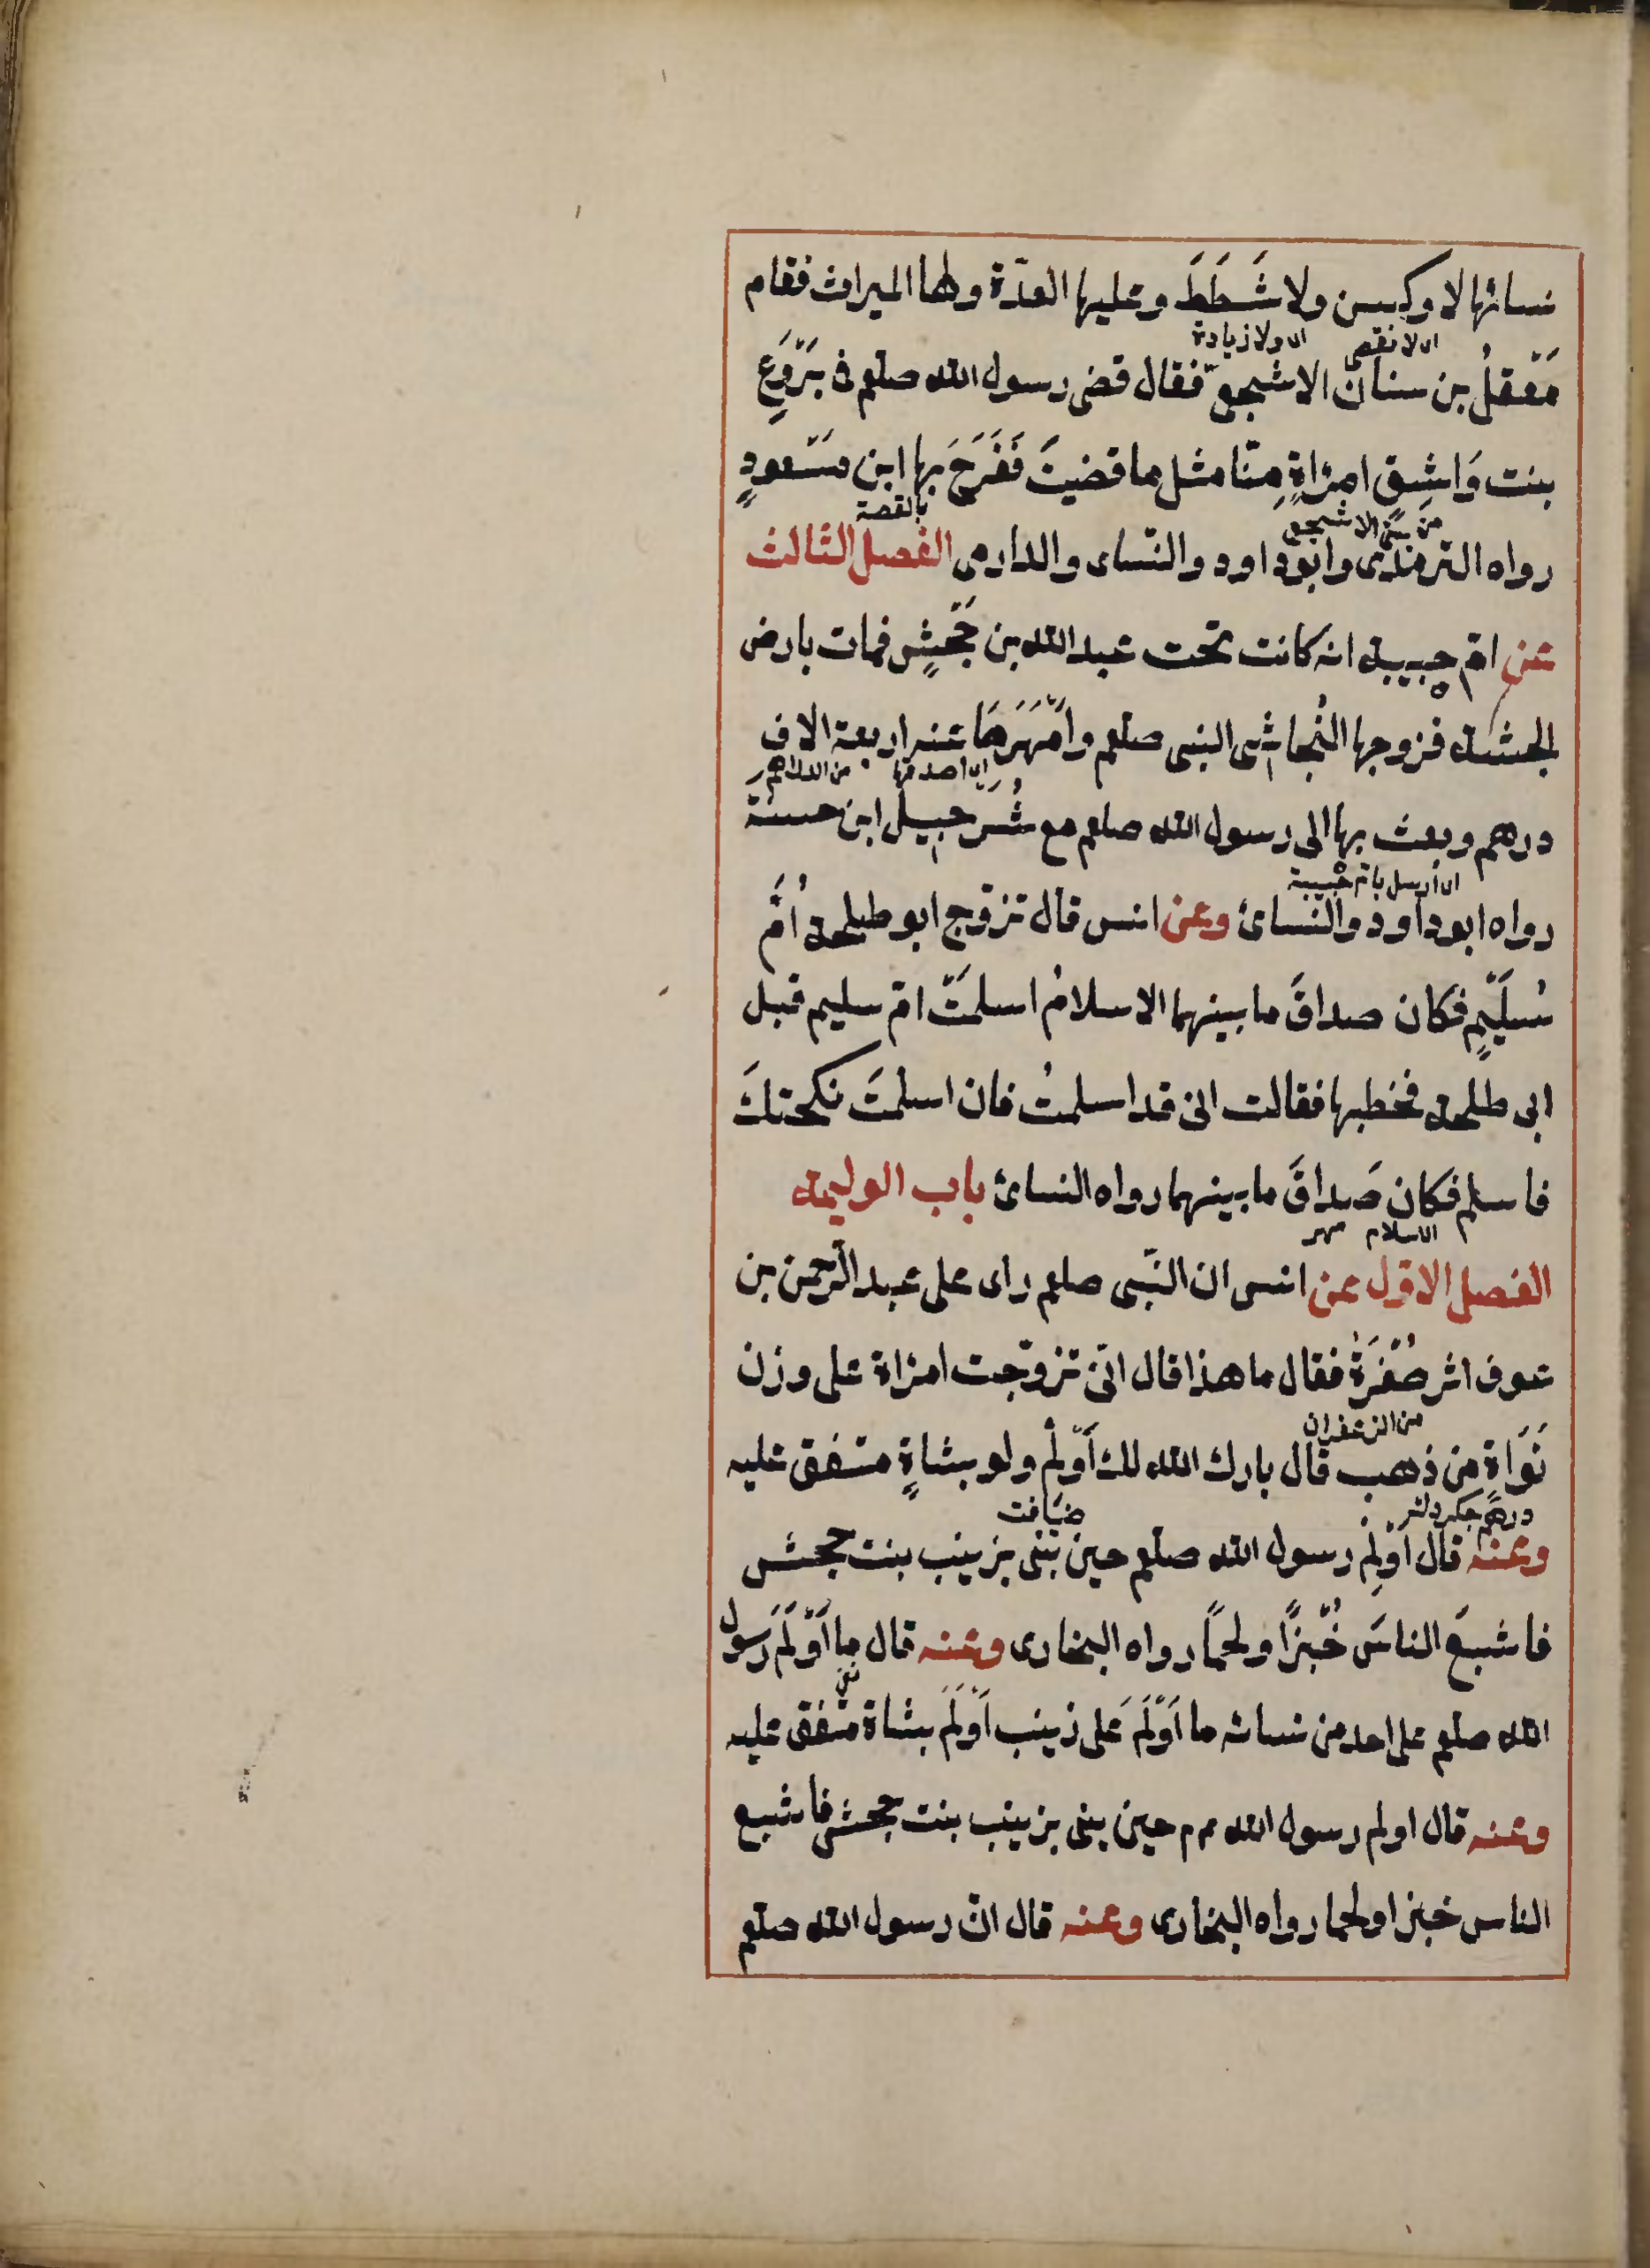 نسائها لا وكس ولا شَطَطَ وعليها العدّة ولها الميراث فقام
اى لا نقص اى ولا زيادة
مَعقلُ بن سنان الاشجعى فقال قضى رسول الله صلعم فى بَرْوَعِ
بنت وَاشِقٍ امرَاةٍ مِنّا مثل ما قضيتَ فَفَرَحَ بها ابن مَسْعودٍ
من بنى الاشجعى بالقصة
رواه الترمذى وابو داود والنّساى والدارمى الفصل الثالث
عن امّ حبيبة انه كانت تحت عبد الله بن جَحْشٍ فمات بارض
الحبشة فزوجها النُجاشى النبى صلعم وامْهَرَهَا عنه اربعة الاف
اى اصدقها من الدراهم
درهم وبعث بها الى رسول الله صلعم مع شُرَحبيل ابن حسنة
اى ارسل بام حبيبة
رواه ابو داود والنسائ وعن انس قال تزوّج ابو طلحة اُمّ
سُلَيْمٍ فكان صداقَ ما بينهما الاسلامُ اسلمَتْ امّ سليم قبل
ابى طلحة فخطبها فقالت انى قد اسلمتُ فان اسلمتَ نكحتكَ
فاسلم فكان صَداقَ ما بينهما رواه النسائ باب الوليمة
الاسلام مهر
الفصل الاوّل عن انس ان النّبى صلعم راى على عبد الرّحمن بن
عوف اثر صُفْرَةٍ فقال ما هذا قال انّى تزوّجت امرَاة على وزن
من الزعفران
نَوَاةٍ من ذهب قال بارك الله لك اَوْلِمْ ولو بشاةٍ متفق عليه
ضيافت
وعنه قال اَوْلَمَ رسول الله صلعم حين بَنٰى بزينب بنت جحش
فاشبعَ الناسَ خُبْزًا ولحمًا رواه البخارى وعنه قال ما اَوْلَمَ رسول
الله صلعم على احد من نسائه ما اَوْلَمَ عَلى زينب اَوْلَمَ بشاة متفق عليه
وعنه قال اولم رسول الله مم حين بنى بزينب بنت جحش فاشبع
الناس خبزا ولحما رواه البخارى وعنه قال انّ رسول الله صلعم